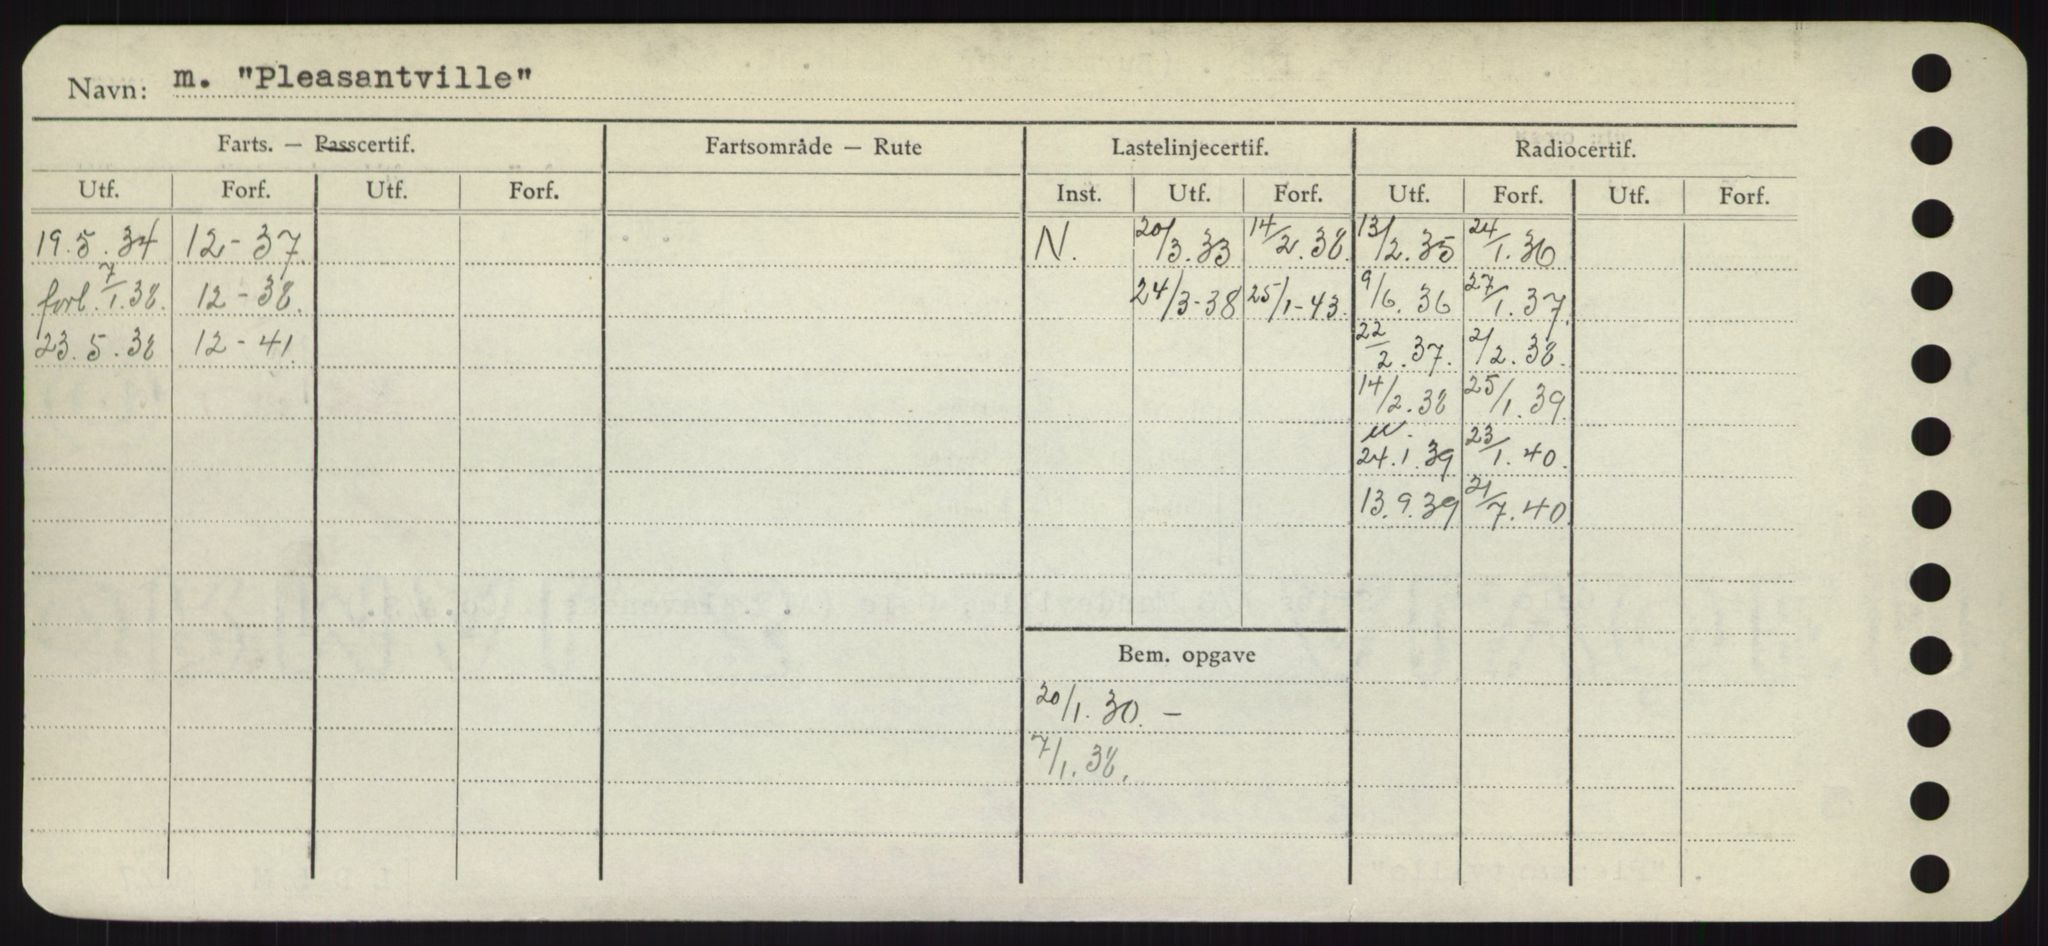 Navn: m. "Pleasantville"
Farts. — Passcertif. Fartsområde — Rute Lastelinjecertif. Radiocertif.
Utf. Forf. Utf. Forf. Inst. Utf. Forf. Utf. Forf. Utf. Forf.
19.5.34 12-37 N. 20/3.33 14/2.38 13/2.35 24/1.36
forl. 7/1.38. 12-38. 24/3-38 25/1-43 9/6.36 27/1.37
23.5.38 12-41 22/2.37. 2/2.38.
14/2.38 25/1.39
24.1.39 23/1.40.
13.9.39 21/7.40
Bem. opgave
20/1.30. —
7/1.38.